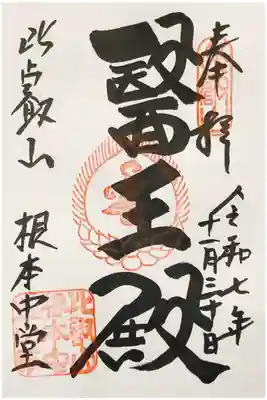 奉拝
令和七年
十一月三十日
醫王殿
比叡山
根本中堂